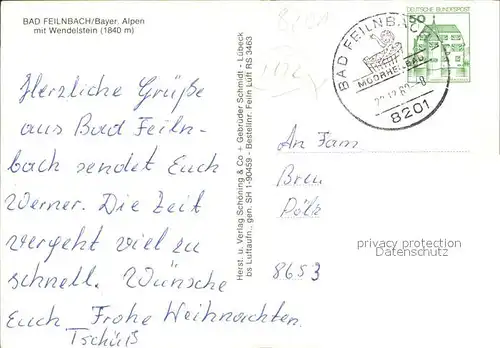 BAD FEILNBACH/Bayer. Alpen
mit Wendelstein (1840 m)
Herzliche Grüße
aus Bad Feiln-
bach sendet Euch
Werner. Die Zeit
vergeht viel zu
schnell. Wünsche
Euch Frohe Weihnachten.
Tschüß
Herst. u. Verlag Schöning & Co + Gebrüder Schmidt - Lübeck
bs Luftaufn., gen. SH 1-90459 - Bestellnr. Feiln Luft RS 3463
DEUTSCHE BUNDESPOST
50
BAD FEILNBACH
MOORHEILBAD
8201
An Fam
8653
privacy protection
Datenschutz